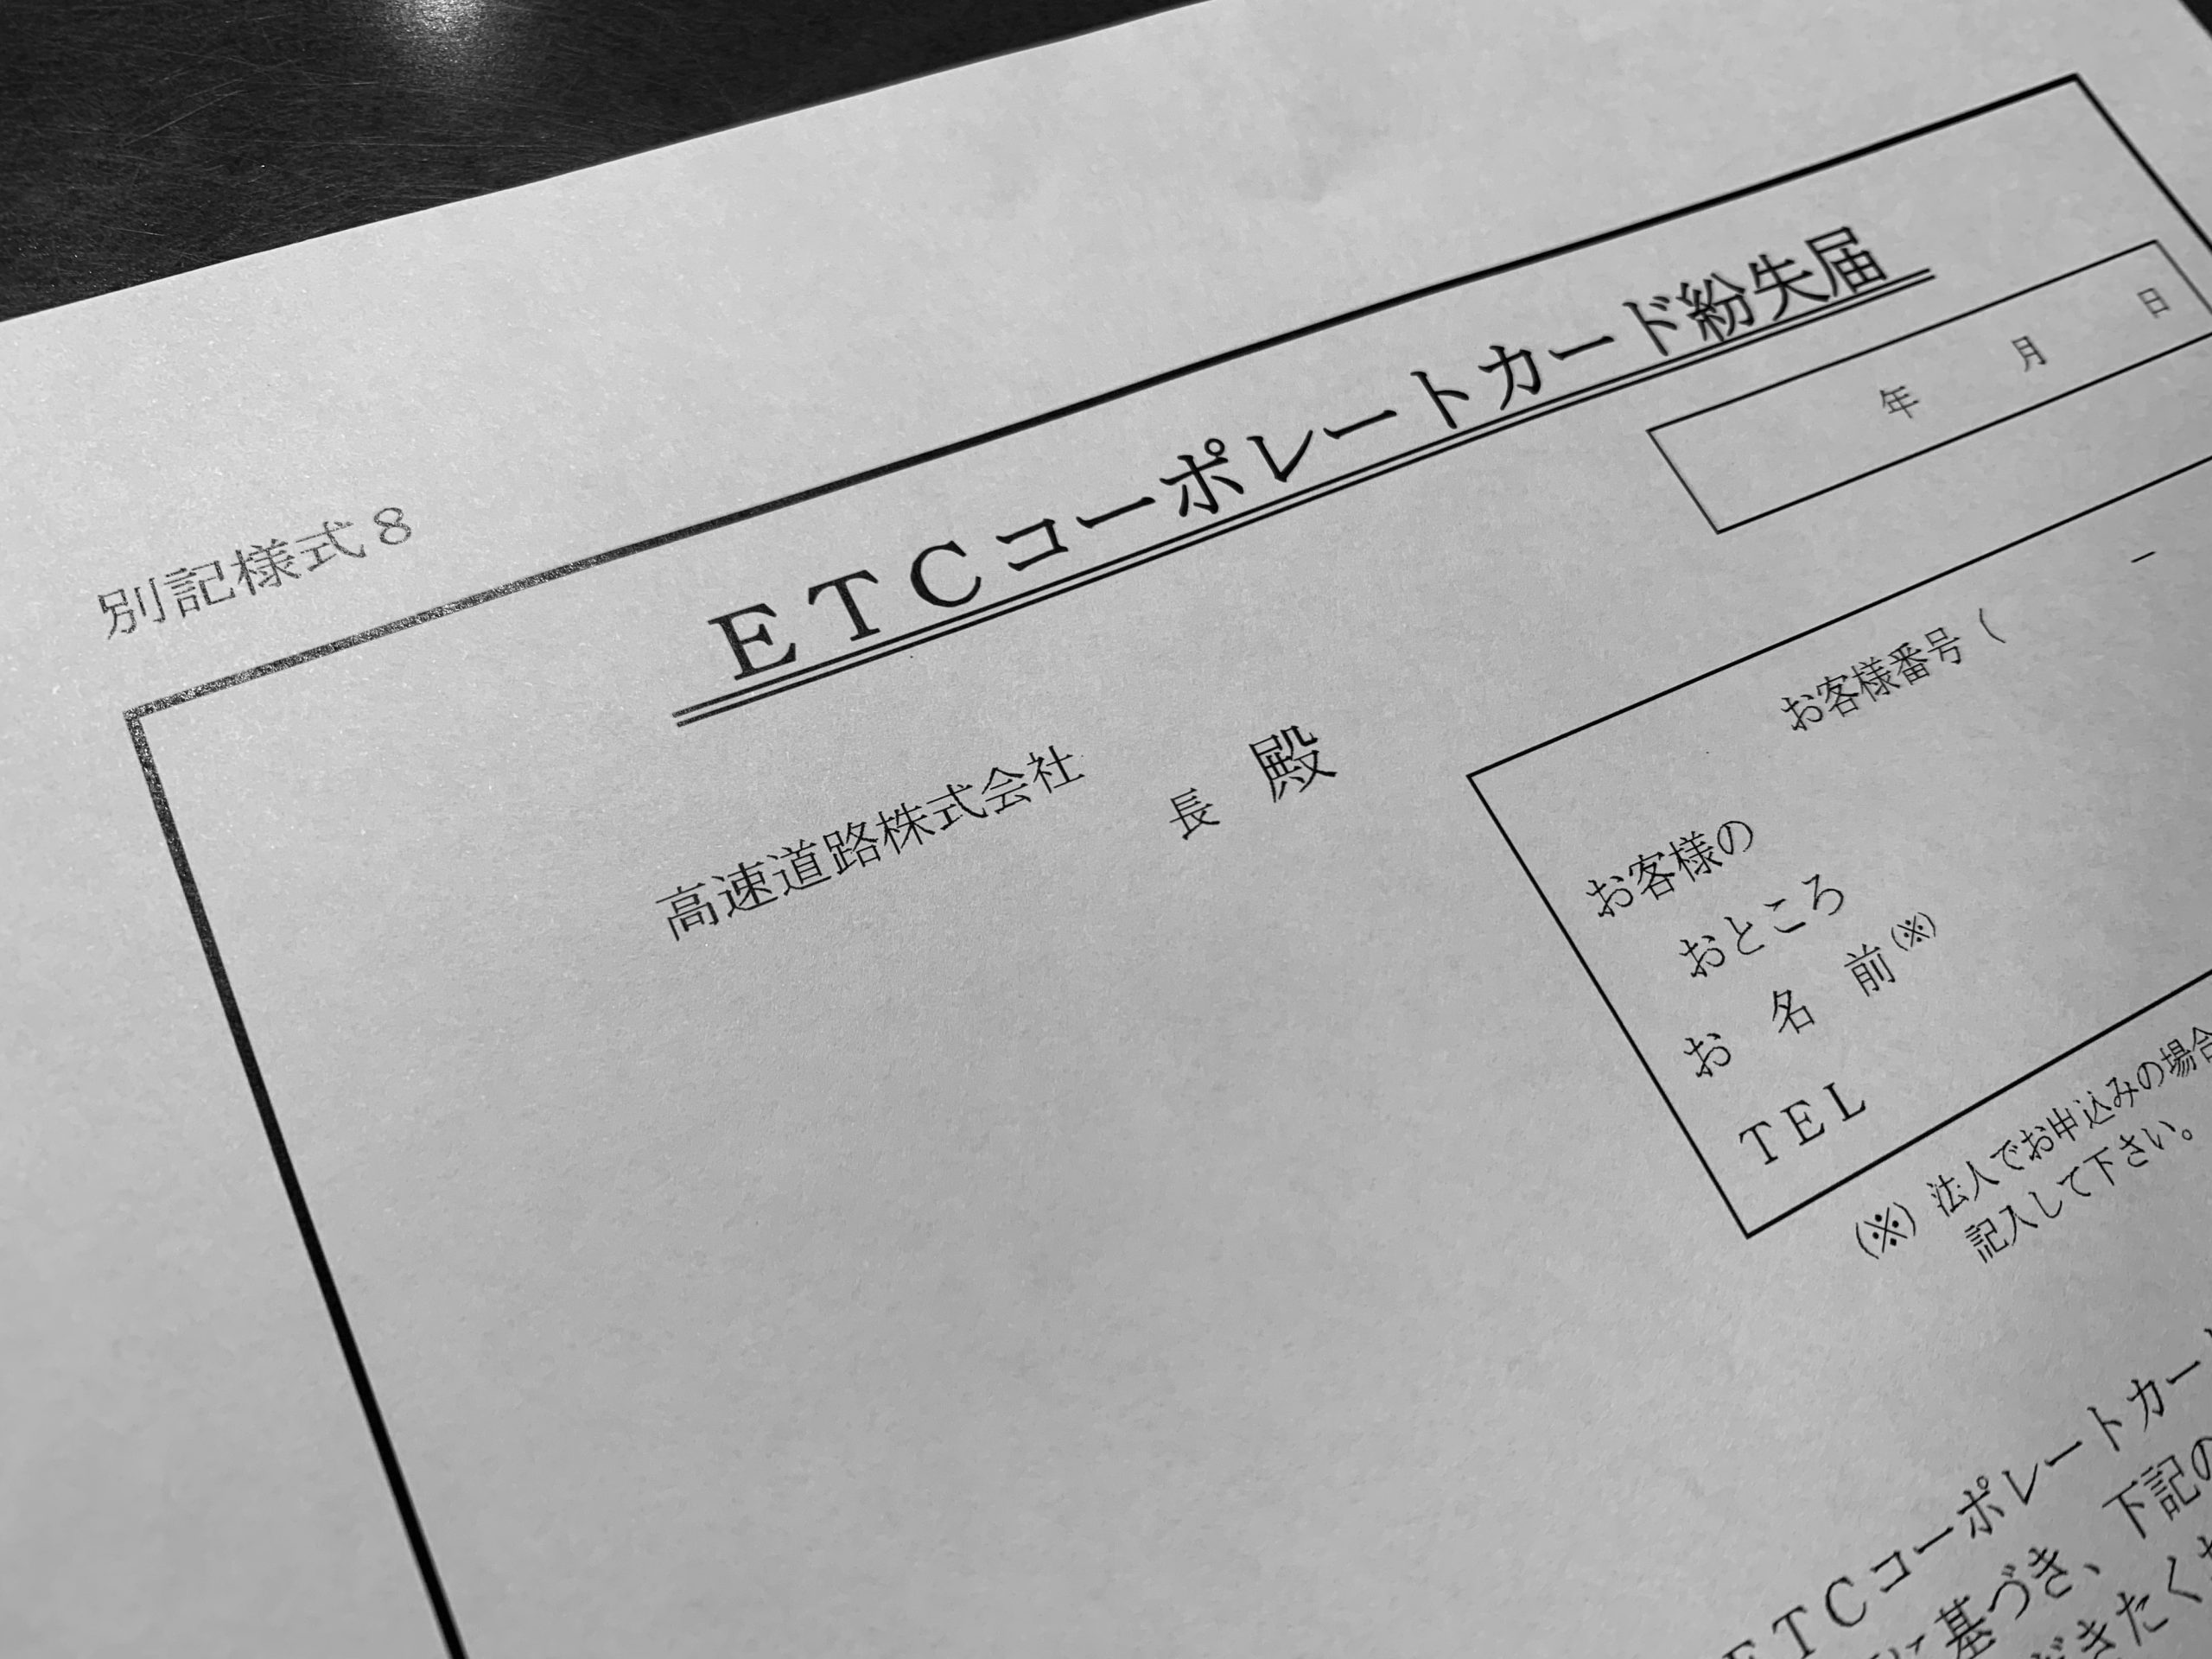 別記様式８
ＥＴＣコーポレートカード紛失届
年　月　日
高速道路株式会社
長　殿
お客様番号（　－
お客様の
おところ
お　名　前(※)
ＴＥＬ
(※) 法人でお申込みの場合
記入して下さい。
ＥＴＣコーポレートカー
に基づき、下記の
だきたく